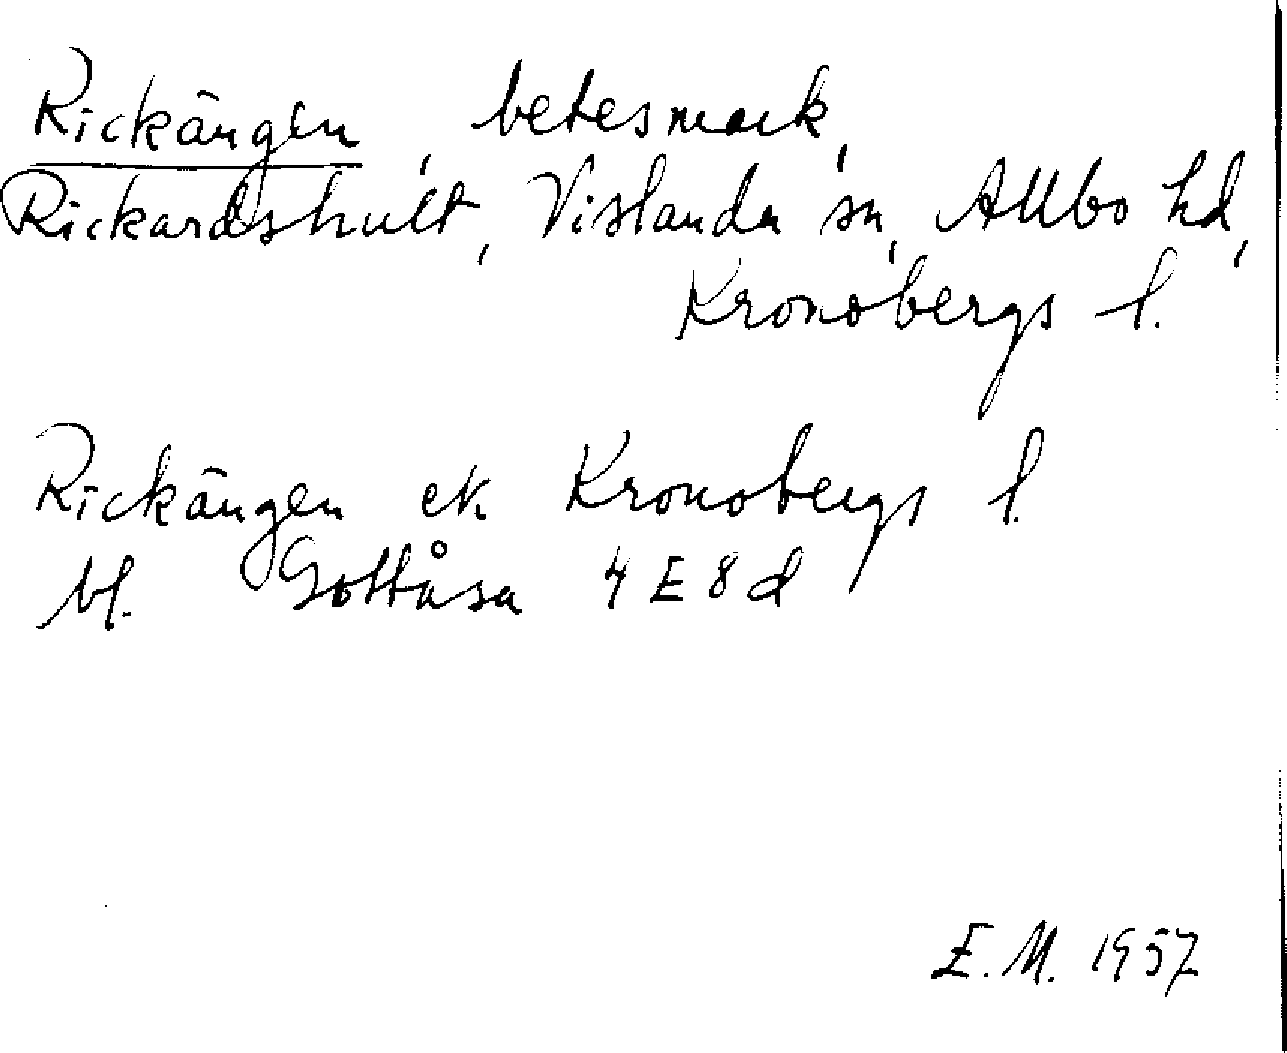 Rickängen, betesmark,
Rickardshult, Vislanda sn, Allbo hd,
Kronobergs l.
Rickängen ek Kronobergs l.
bl. Gottåsa 4E8d
E.M. 1957